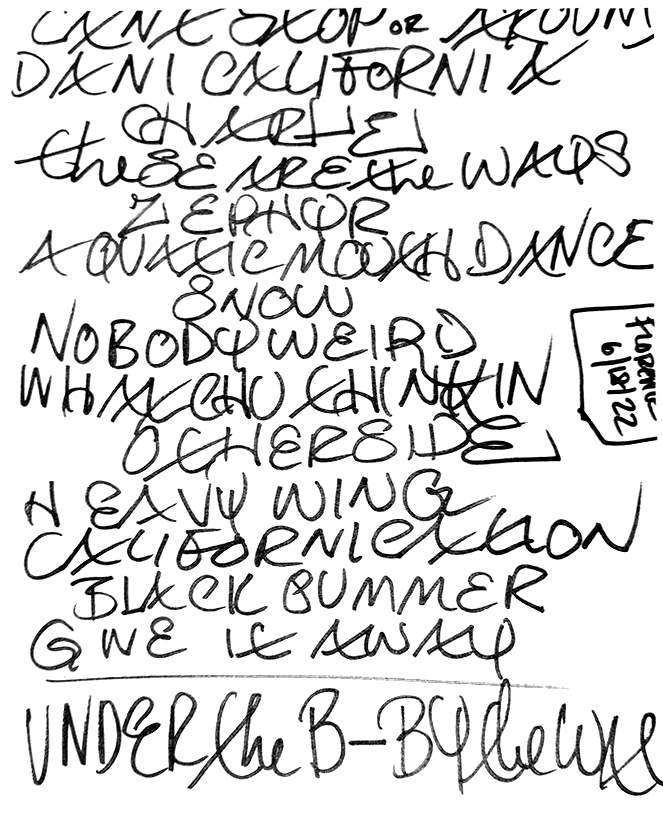 CAN'T STOP OR AROUN
DANI CALIFORNIA
CHARLIE
theSE ARE the WAYS
ZEPHYR
AQUATIC MOUTH DANCE
SNOW
NOBODY WEIRD
WHATCHU THINKIN
OTHERSIDE
HEAVY WING
CALIFORNICATION
BLACK SUMMER
GIVE IT AWAY
UNDER the B-BY the WAY
6/18/22